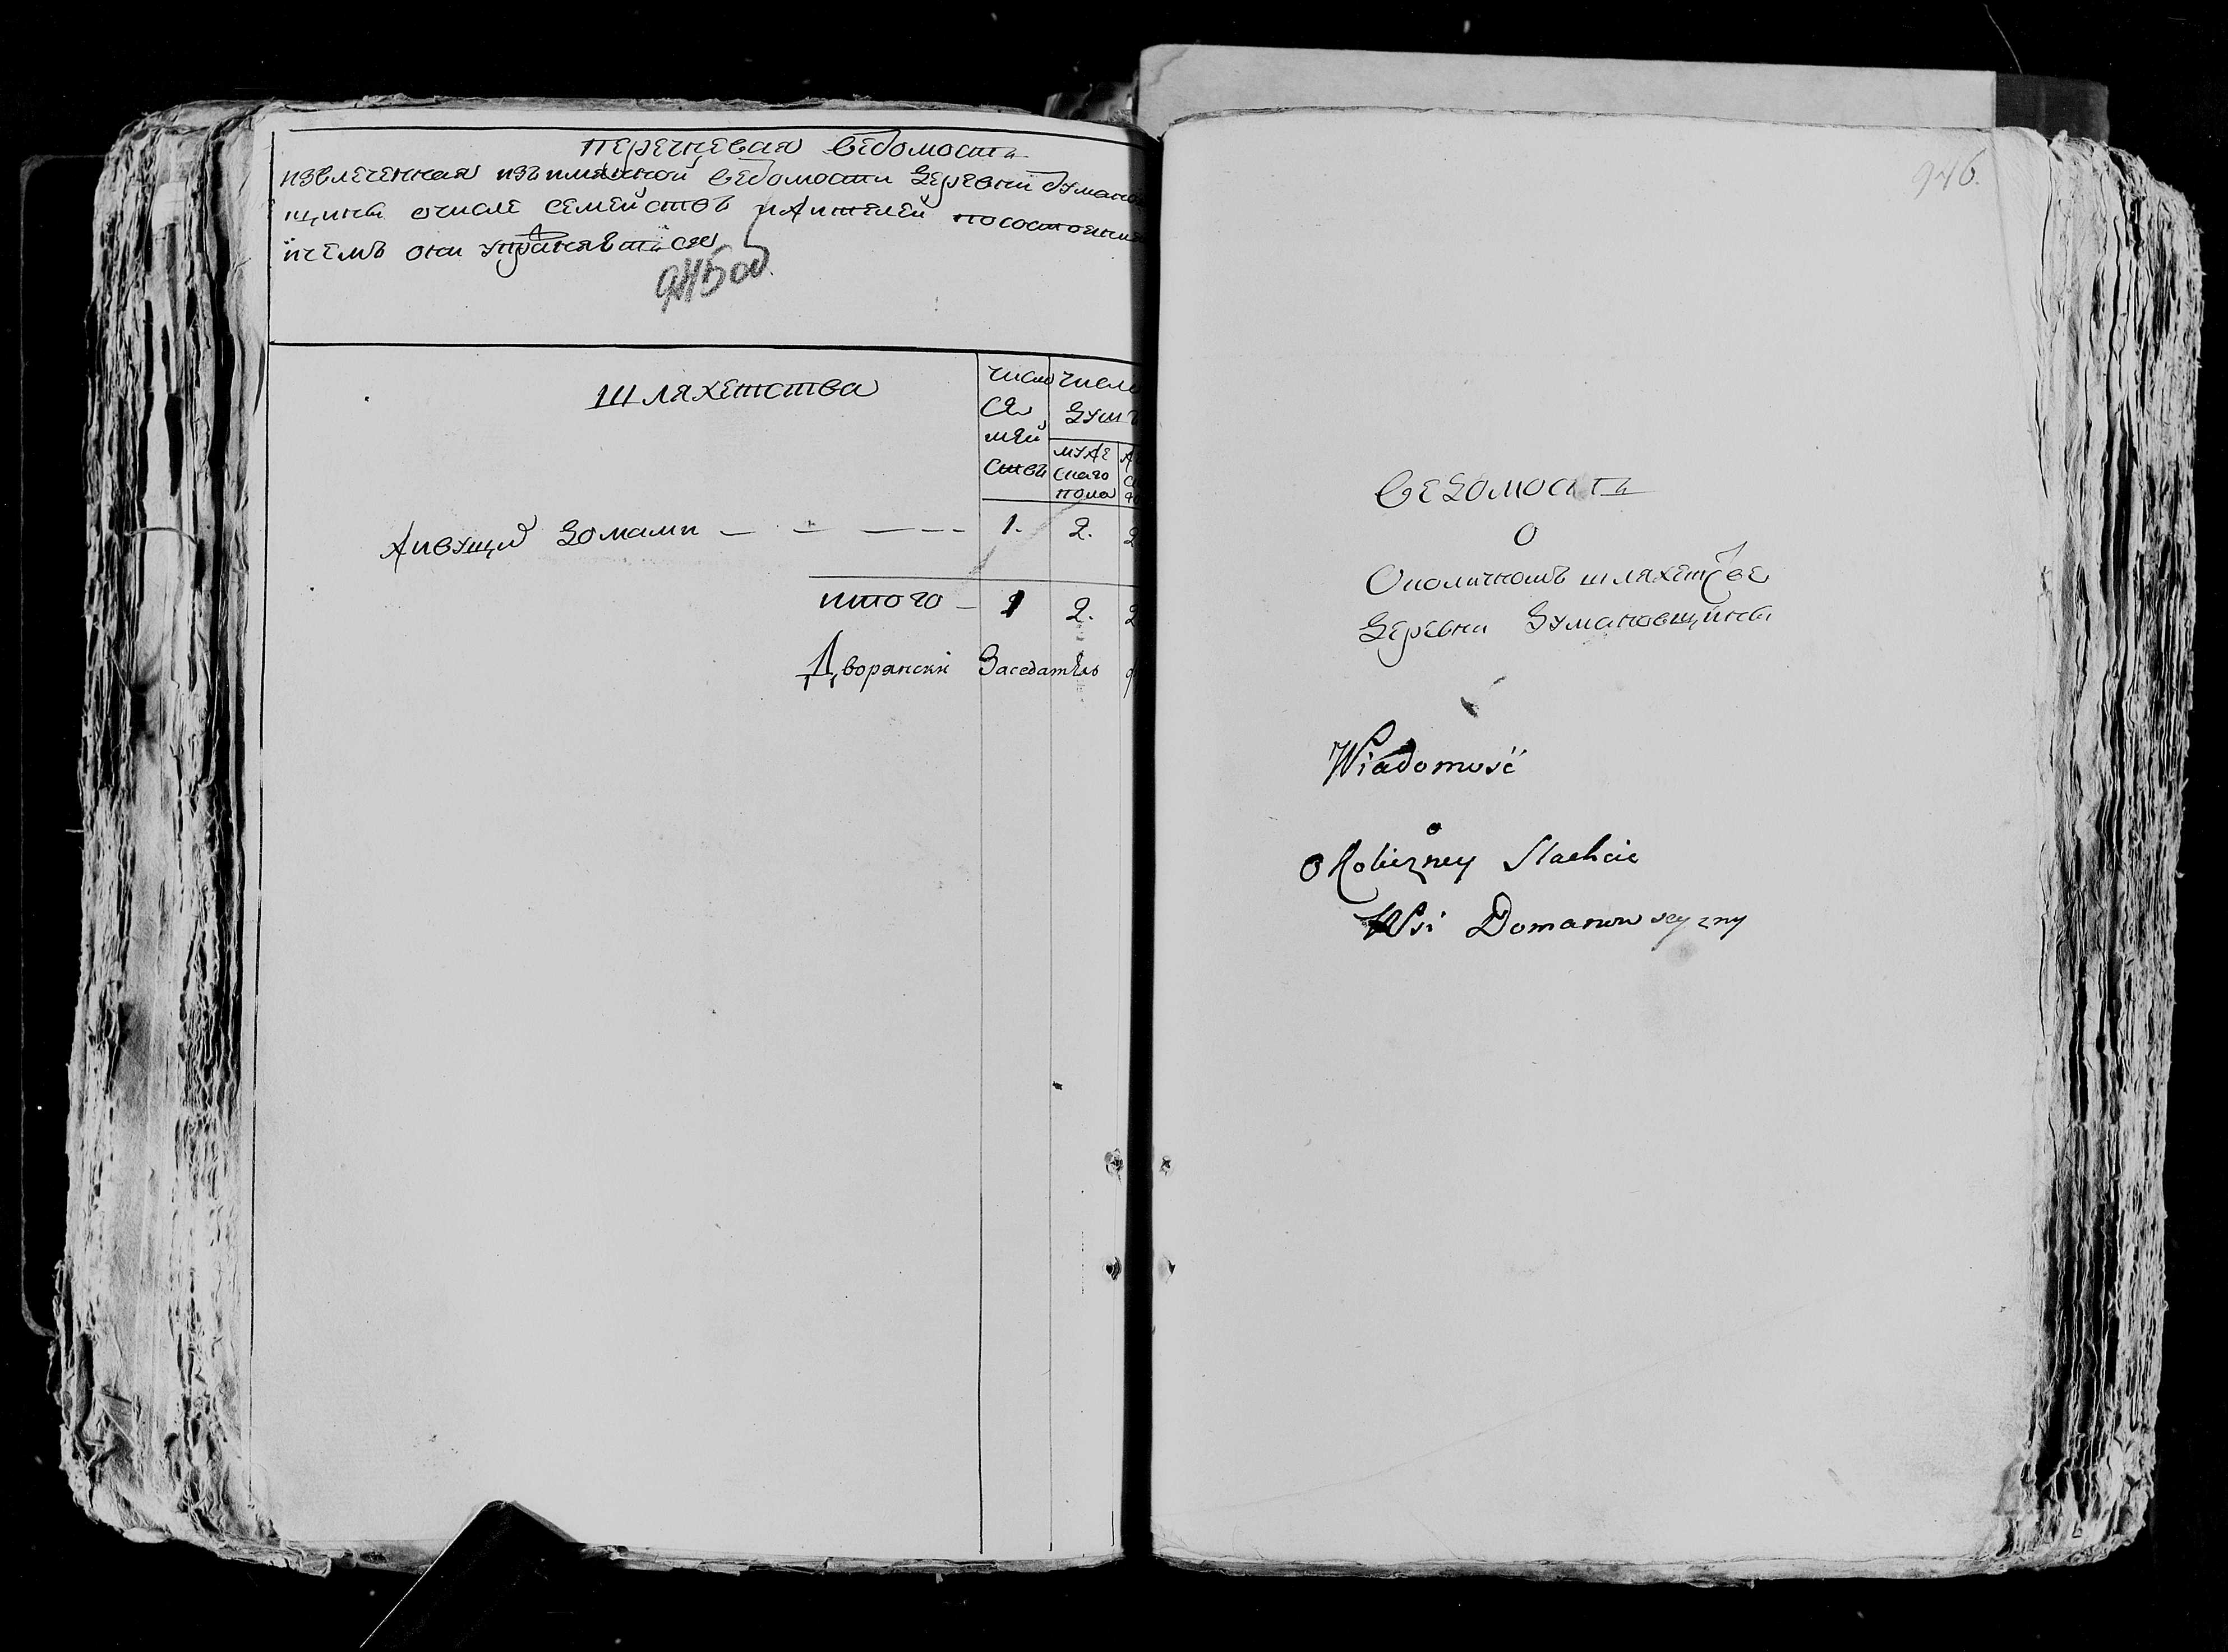 перечневая ведомость
извлеченная изъимянной ведомости деревни думанов
щины очисле семействъ ижителей посостоянию
ичемъ они упражняются
945 об.
шляхетства
число
се
мей
ствъ
число
душъ
муже
скаго
пола
живущия домами — — — — — 1. 2. 2
итого — 1 2. 2
Дворянски Заседатель
946.
ведомость
о
Околичномъ шляхетстве
деревни думановщины
Wiadomość
o
okoliczney Slachcie
Wsi Domanowsczyzny